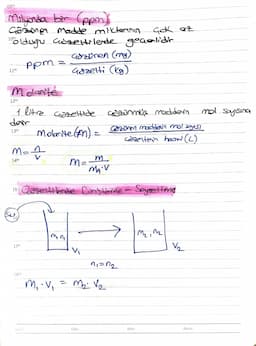 Milyonda bir (ppm)
Çözünen madde miktarının çok az
olduğu çözeltilerde geçerlidir
ppm = Çözünen (mg)
Çözelti (kg)
Molarite
1 litre çözeltide çözünmüş maddenin mol sayısına
denir
Molarite (M) = Çözünen maddenin mol sayısı
Çözeltinin hacmi (L)
M = n
V
M = m
MA·V
Çözeltilerde Deriştirme - Seyreltme
Su
M1 n1
V1
M2, n2
V2
n1 = n2
M1 . V1 = M2 . V2